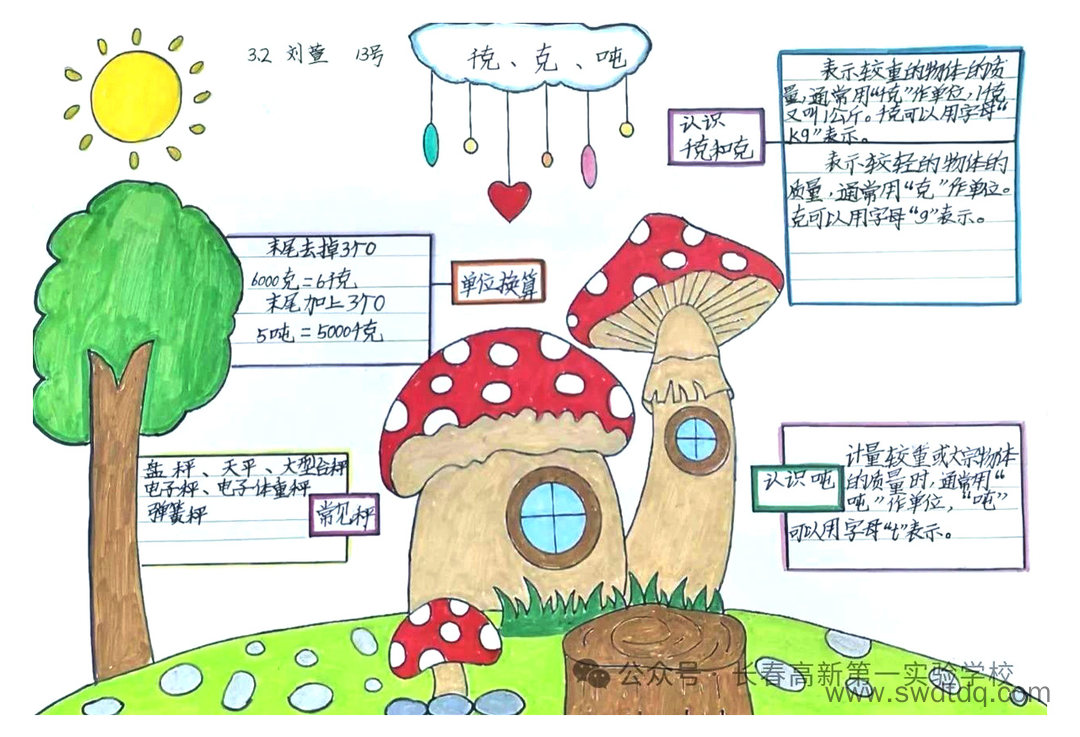 3.2 刘萱 13号
千克、克、吨
认识
千克和克
表示较重的物体的质
量,通常用“千克”作单位,1千克
又叫1公斤。千克可以用字母“
kg”表示。
表示较轻的物体的
质量,通常用“克”作单位。
克可以用字母“g”表示。
末尾去掉3个0
6000克=6千克
末尾加上3个0
5吨=5000千克
单位换算
盘秤、天平、大型台秤
电子秤、电子体重秤
弹簧秤
常见秤
认识吨
计量较重或大宗物体
的质量时,通常用“
吨”作单位,“吨”
可以用字母“t”表示。
公众号·长春高新第一实验学校
www.swdtdq.com